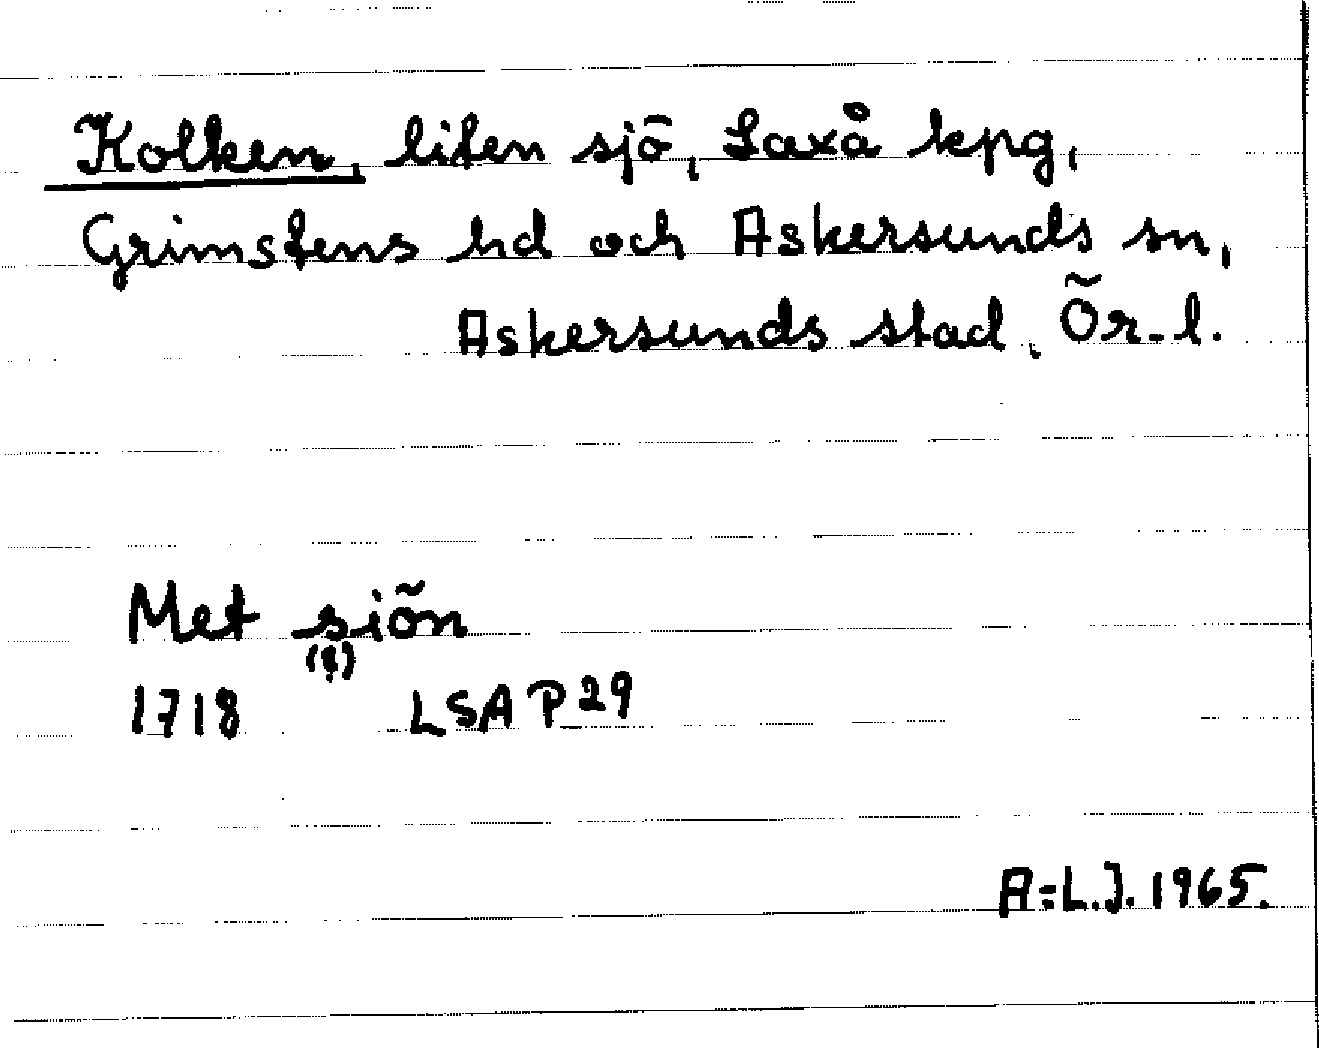 Kolken, liten sjö, Laxå kpg,
Grimstens hd och Askersunds sn,
Askersunds stad, Ör. l.
Met siön
(?)
1718 LSA P 29
A-L.J. 1965.